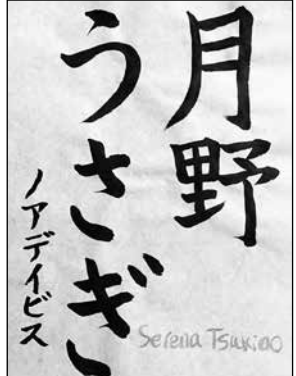 月野
うさぎ
ノアデイビス
Serena Tsukino